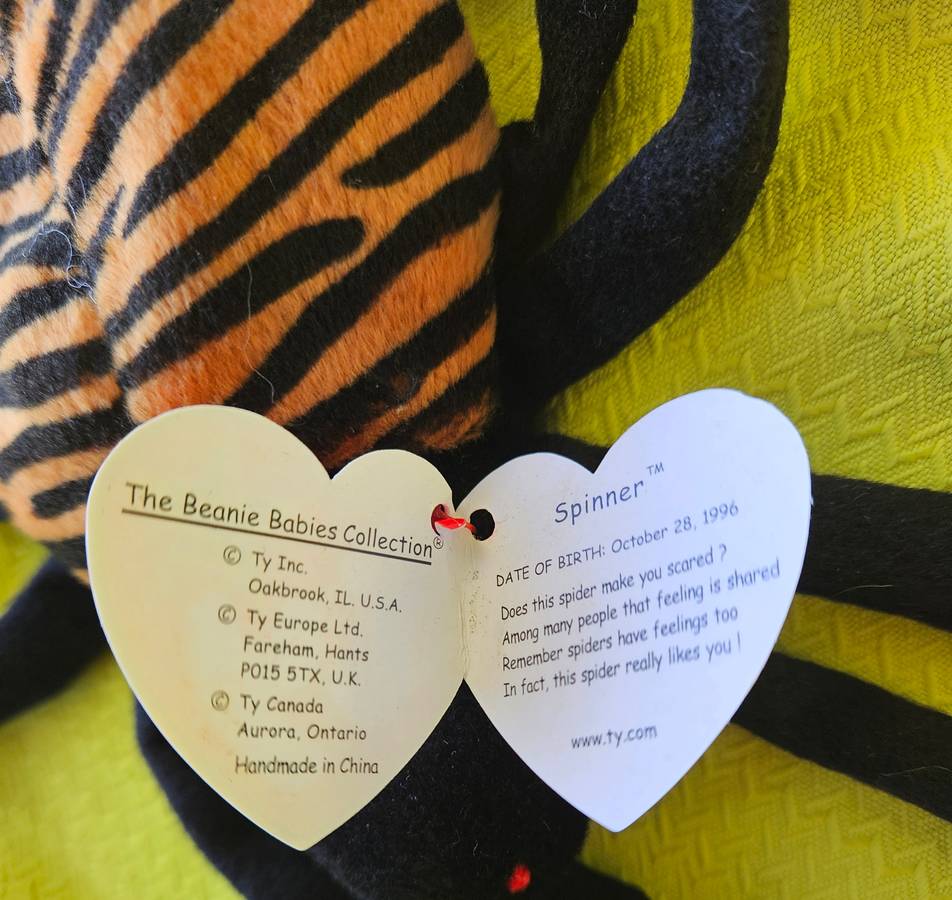 The Beanie Babies Collection®
© Ty Inc.
Oakbrook, IL. U.S.A.
© Ty Europe Ltd.
Fareham, Hants
PO15 5TX, U.K.
© Ty Canada
Aurora, Ontario
Handmade in China
Spinner™
DATE OF BIRTH: October 28, 1996
Does this spider make you scared ?
Among many people that feeling is shared
Remember spiders have feelings too
In fact, this spider really likes you !
www.ty.com